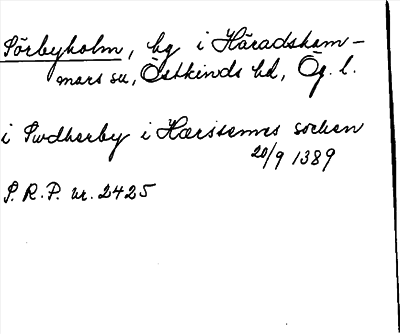 Sörbyholm, hg i Häradsham-
mars sn, Östkinds hd, Ög. l.
i Swdherby i Hærstemes sochen
20/9 1389
S. R. P. nr. 2425